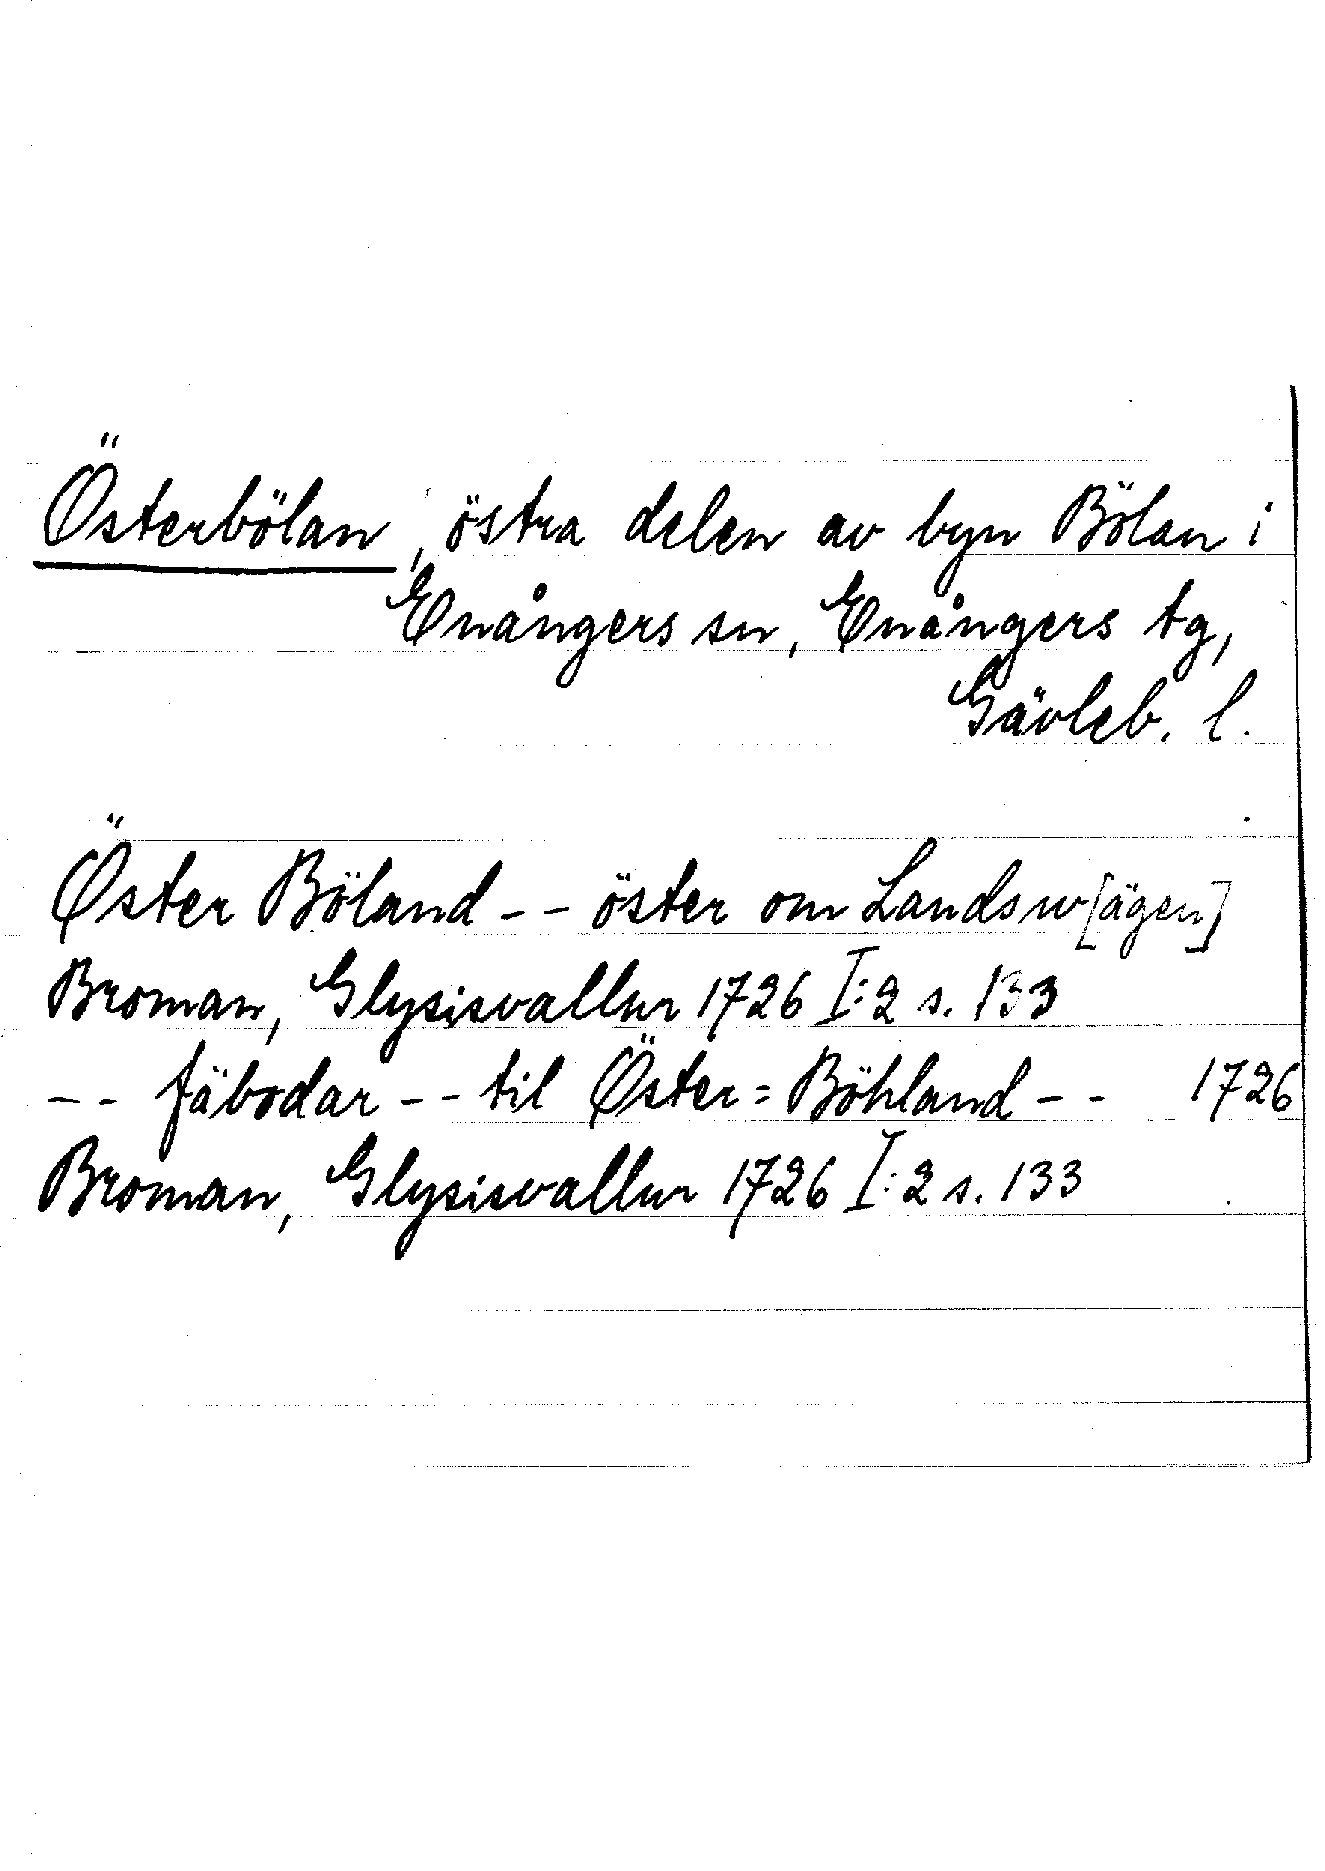 Österbölan, östra delen av byn Bölan i
Enångers sn, Enångers tg,
Gävleb. l.
Öster Böland -- öster om Landsw[ägen]
Broman, Glysisvallur 1726 I:2 s. 133
-- fäbodar -- til Öster=Böhland -- 1726
Broman, Glysisvallur 1726 I:2 s. 133